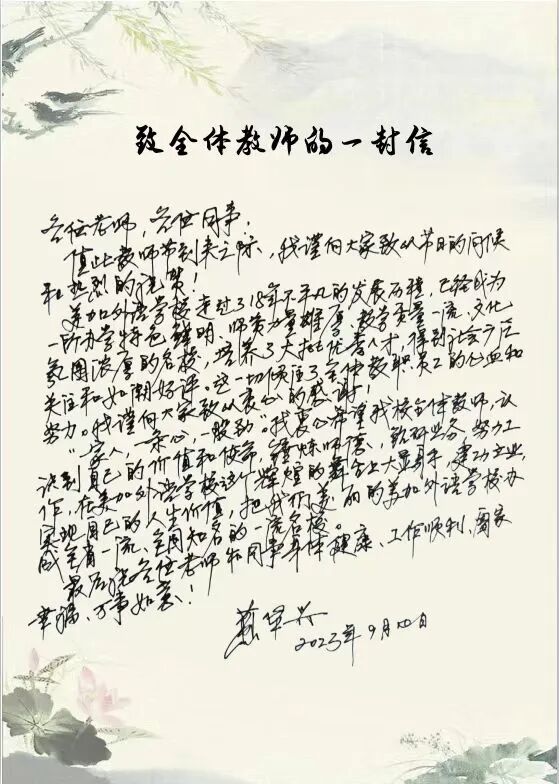 致全体教师的一封信
各位老师，各位同事：
值此教师节到来之际，我谨向大家致以节日的问候
和热烈的祝贺！
美加外语学校走过了18年不平凡的发展历程，已经成为
一所办学特色鲜明、师资力量雄厚、教学质量一流、文化
氛围浓厚的名校，培养了大批优秀人才，得到社会广泛
关注和如潮好评。这一切倾注了全体教职员工的心血和
努力。我谨向大家致以衷心的感谢！
“一家人，一条心，一股劲”。我衷心希望我校全体教师，认
识到自己的价值和使命，锤炼师德，钻研业务，努力工
作，在美加外语学校这个辉煌的舞台上大显身手，建功立业，
实现自己的人生价值，把我们美丽的美加外语学校办
成全省一流、全国知名的一流名校。
最后祝各位老师和同事身体健康、工作顺利、阖家
幸福、万事如意！
2023年9月10日